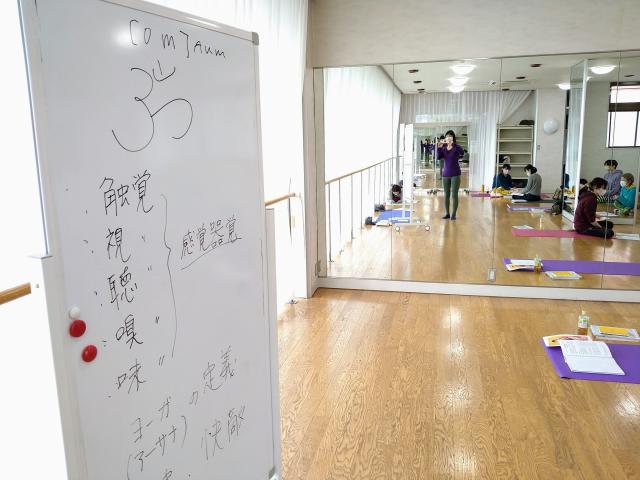 [OM] Aum
ॐ
触覚
視 〃
聴 〃
嗅 〃
味 〃
感覚器覚
ヨーガ
(アーサナ)
の定義
快